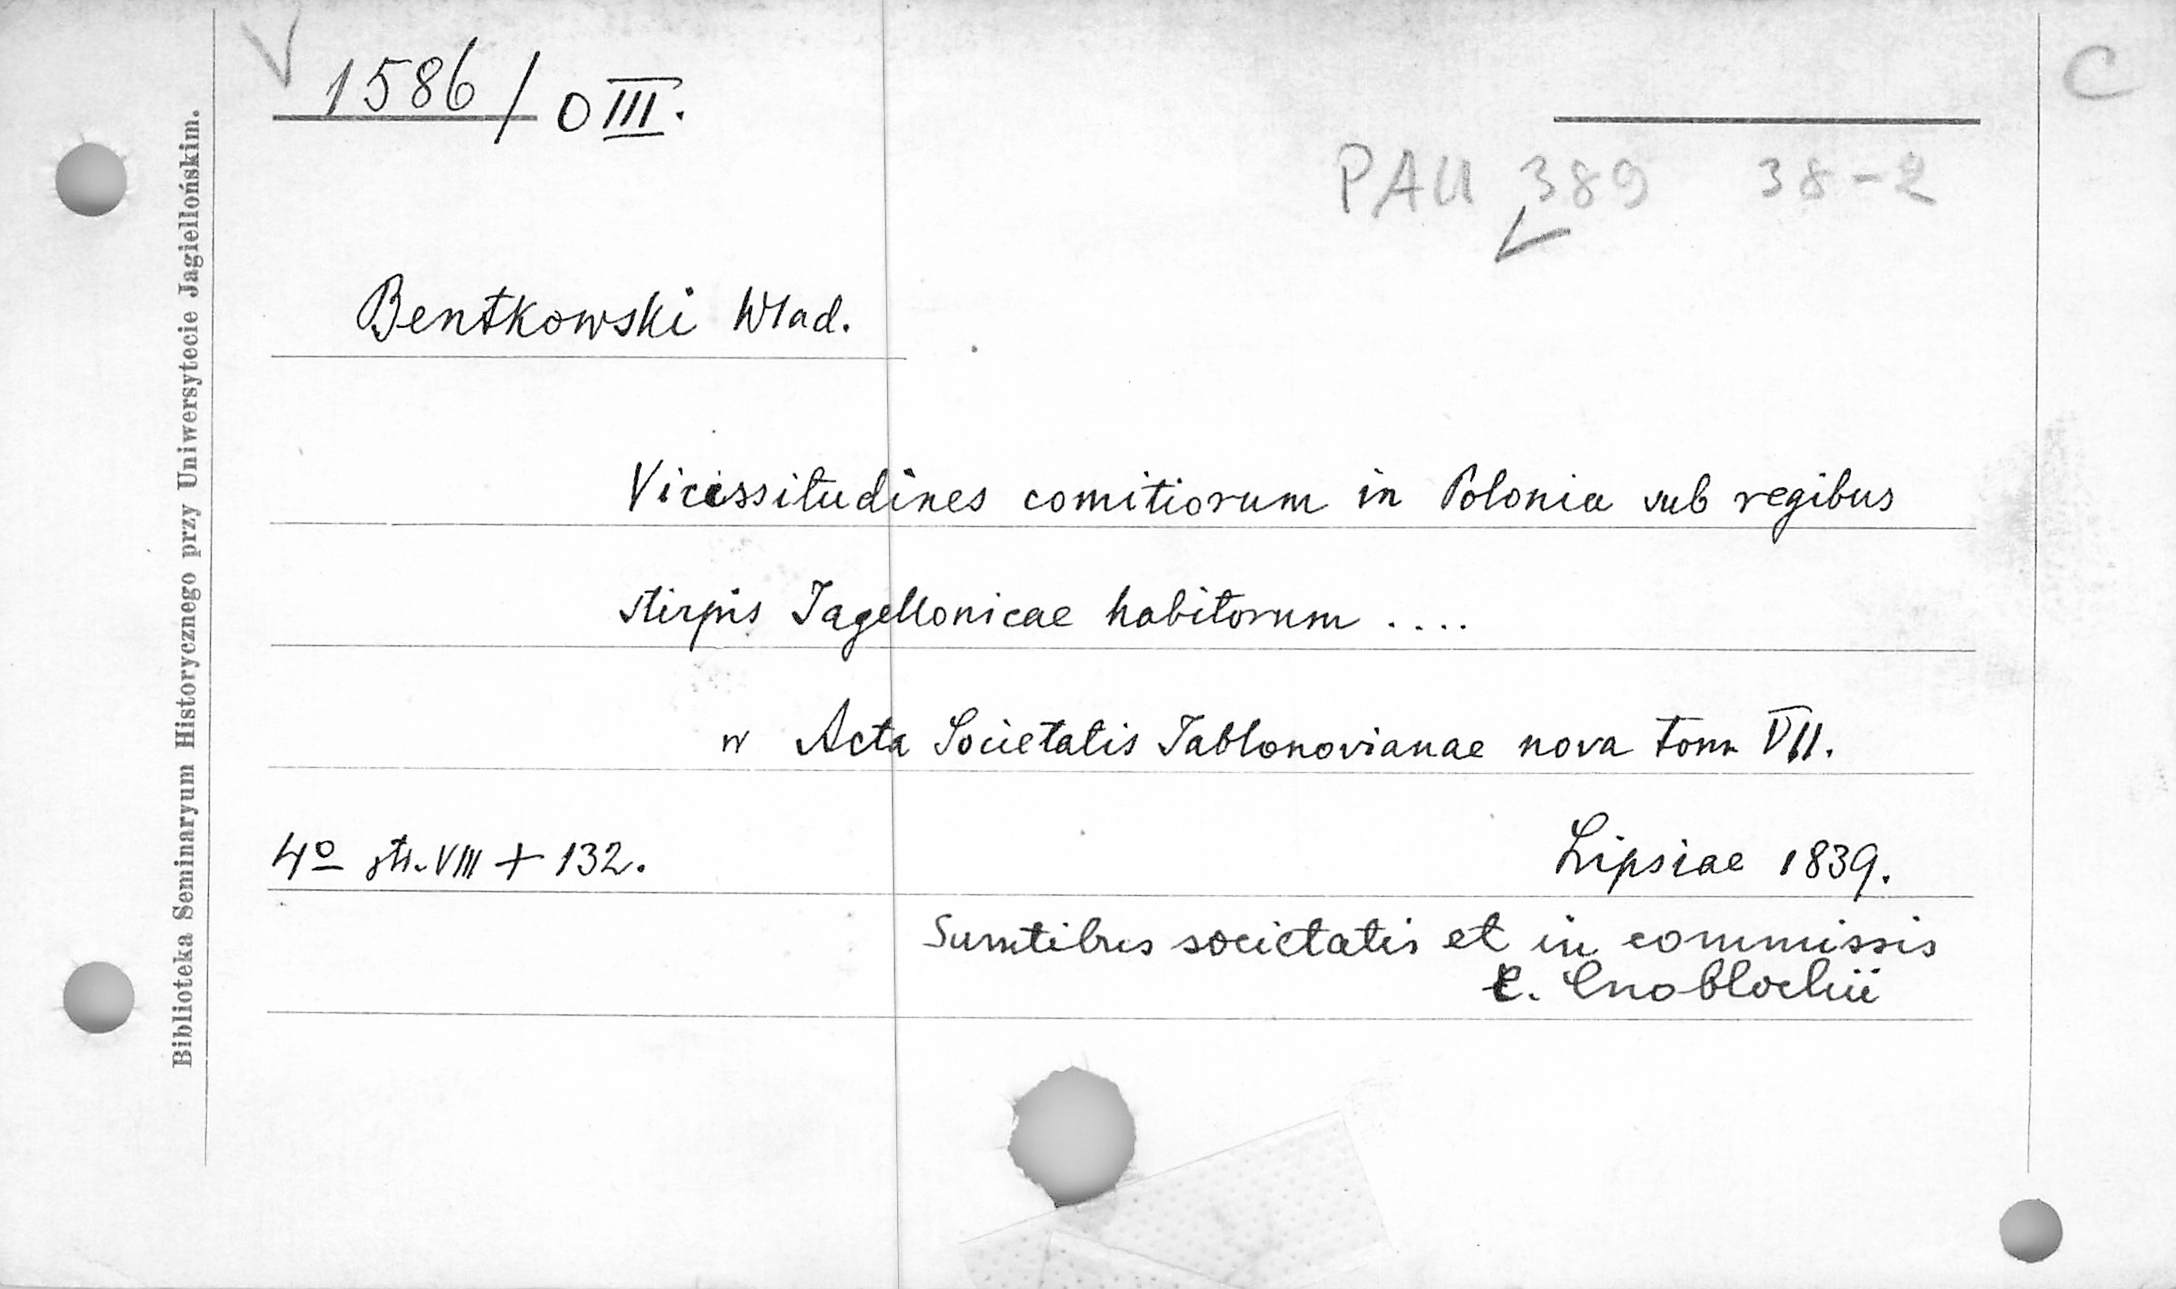 V 1586 / O III.
C
PAU 389 38-2
Bentkowski Wład.
Vicissitudines comitiorum in Polonia sub regibus
stirpis Jagellonicae habitorum ....
w Acta Societatis Jablonovianae nova Tom VII.
4º str. VIII + 132.
Lipsiae 1839.
Sumtibus societatis et in commissis
C. Cnoblochii
Biblioteka Seminaryum Historycznego przy Uniwersytecie Jagiellońskim.